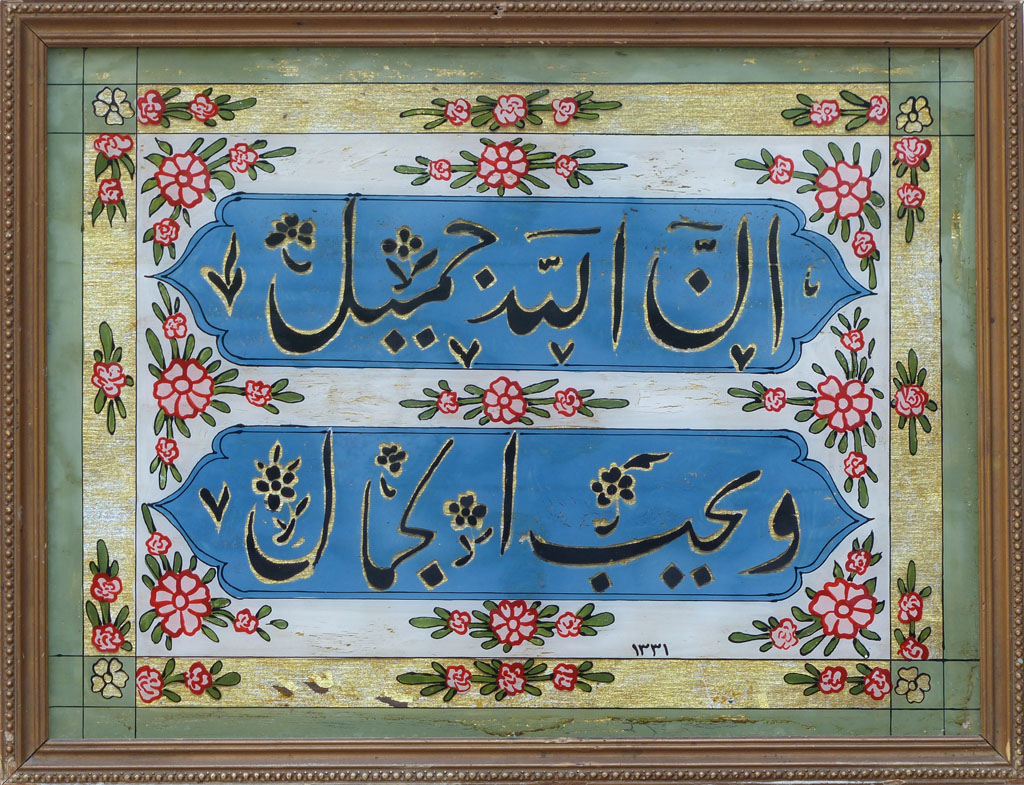 ان الله جميل
ويحب الجمال
١٣٣١